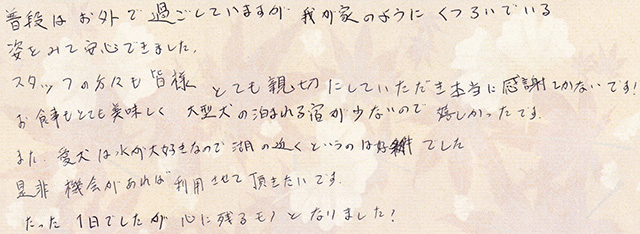 普段はお外で過ごしていますが 我が家のようにくつろいでいる
姿をみて安心できました。
スタッフの方々も皆様 とても親切にしていただき本当に感謝しかないです!
お食事もとても美味しく 大型犬の泊まれる宿が少ないので 嬉しかったです。
また、愛犬は水が大好きなので湖の近くというのは好条件でした
是非 機会があれば利用させて頂きたいです。
たった1日でしたが 心に残るモノとなりました!